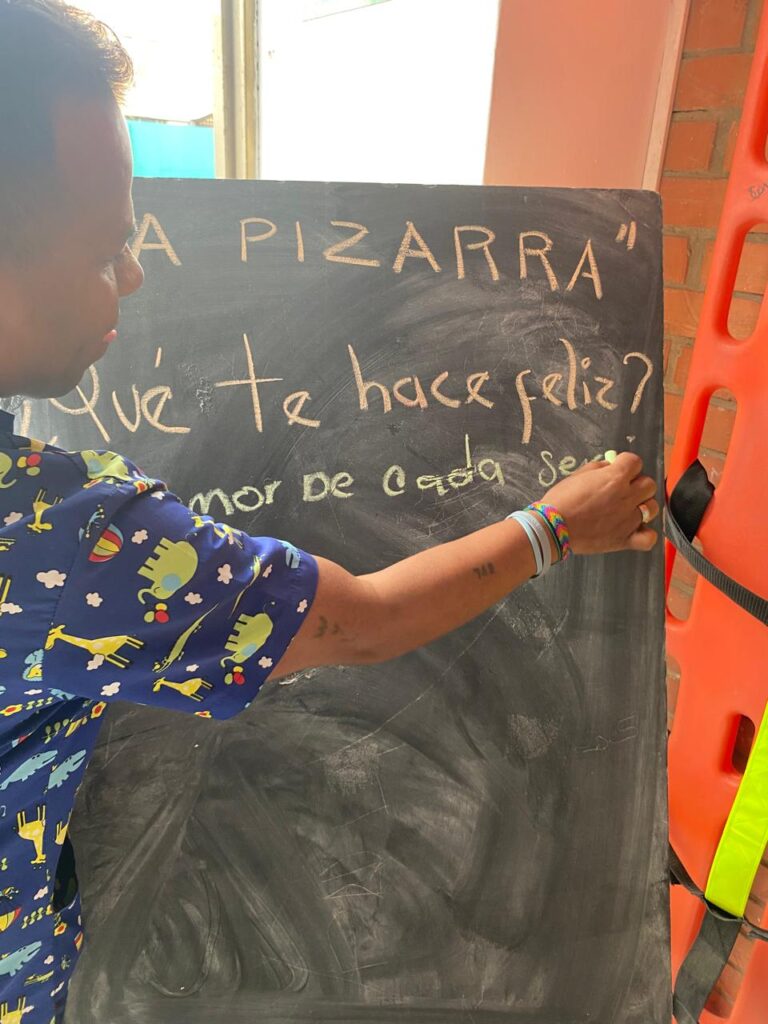 A PIZARRA"
¿Qué te hace feliz?
mor De cada se